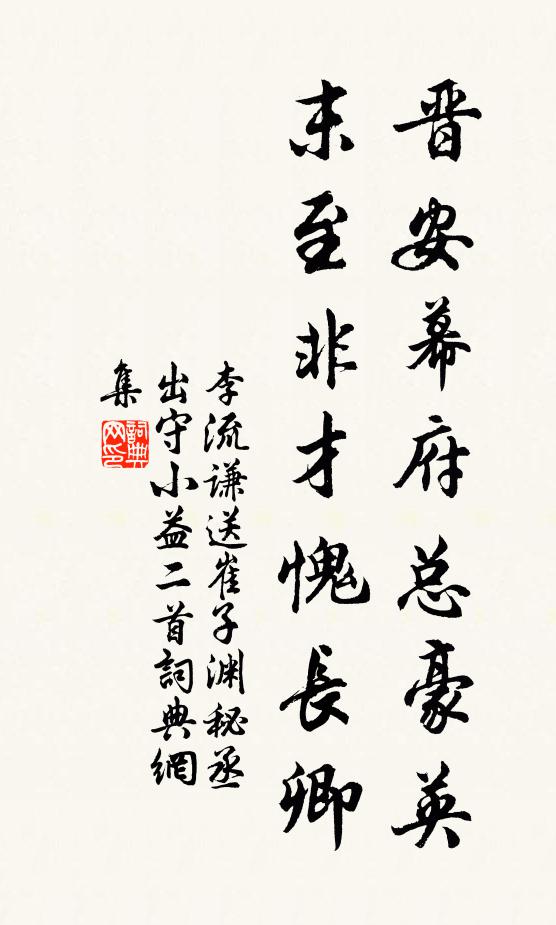 晋安幕府总豪英
末至非才愧長卿
李流谦送崔子渊秘丞
出守小益二首詞典網
集
詞典网印